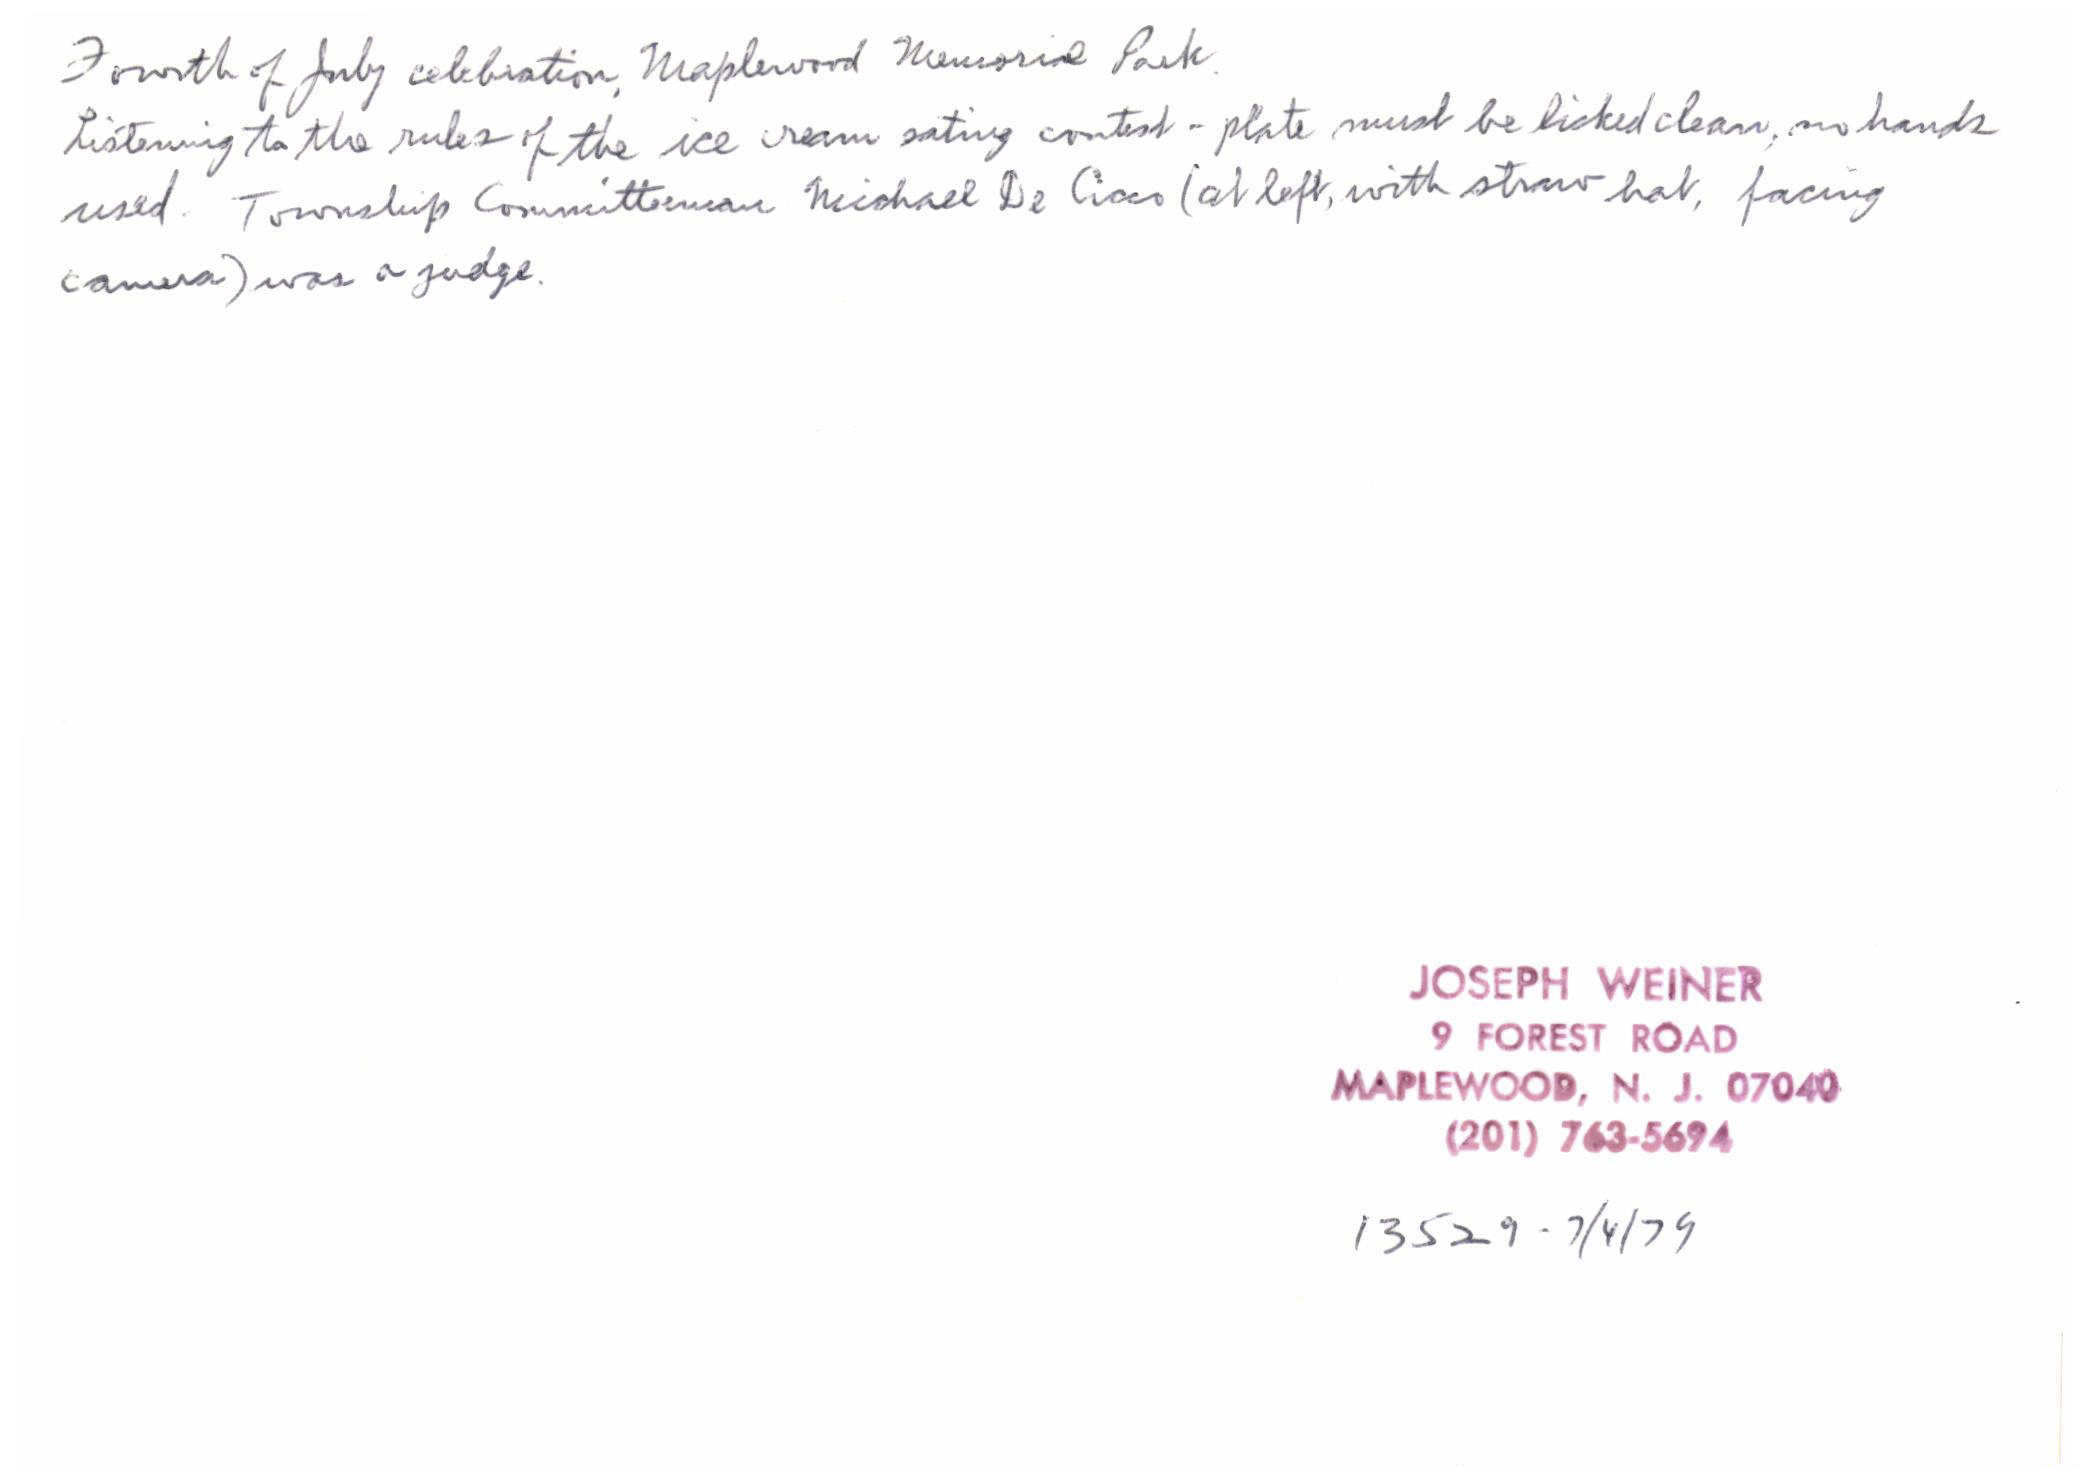 Fourth of July celebration, Maplewood Memorial Park.
Listening to the rules of the ice cream eating contest - plate must be licked clean, no hands
used. Township Committeeman Michael De Cicco (at left, with straw hat, facing
camera) was a judge.
JOSEPH WEINER
9 FOREST ROAD
MAPLEWOOD, N. J. 07040
(201) 763-5694
13529 - 7/4/79